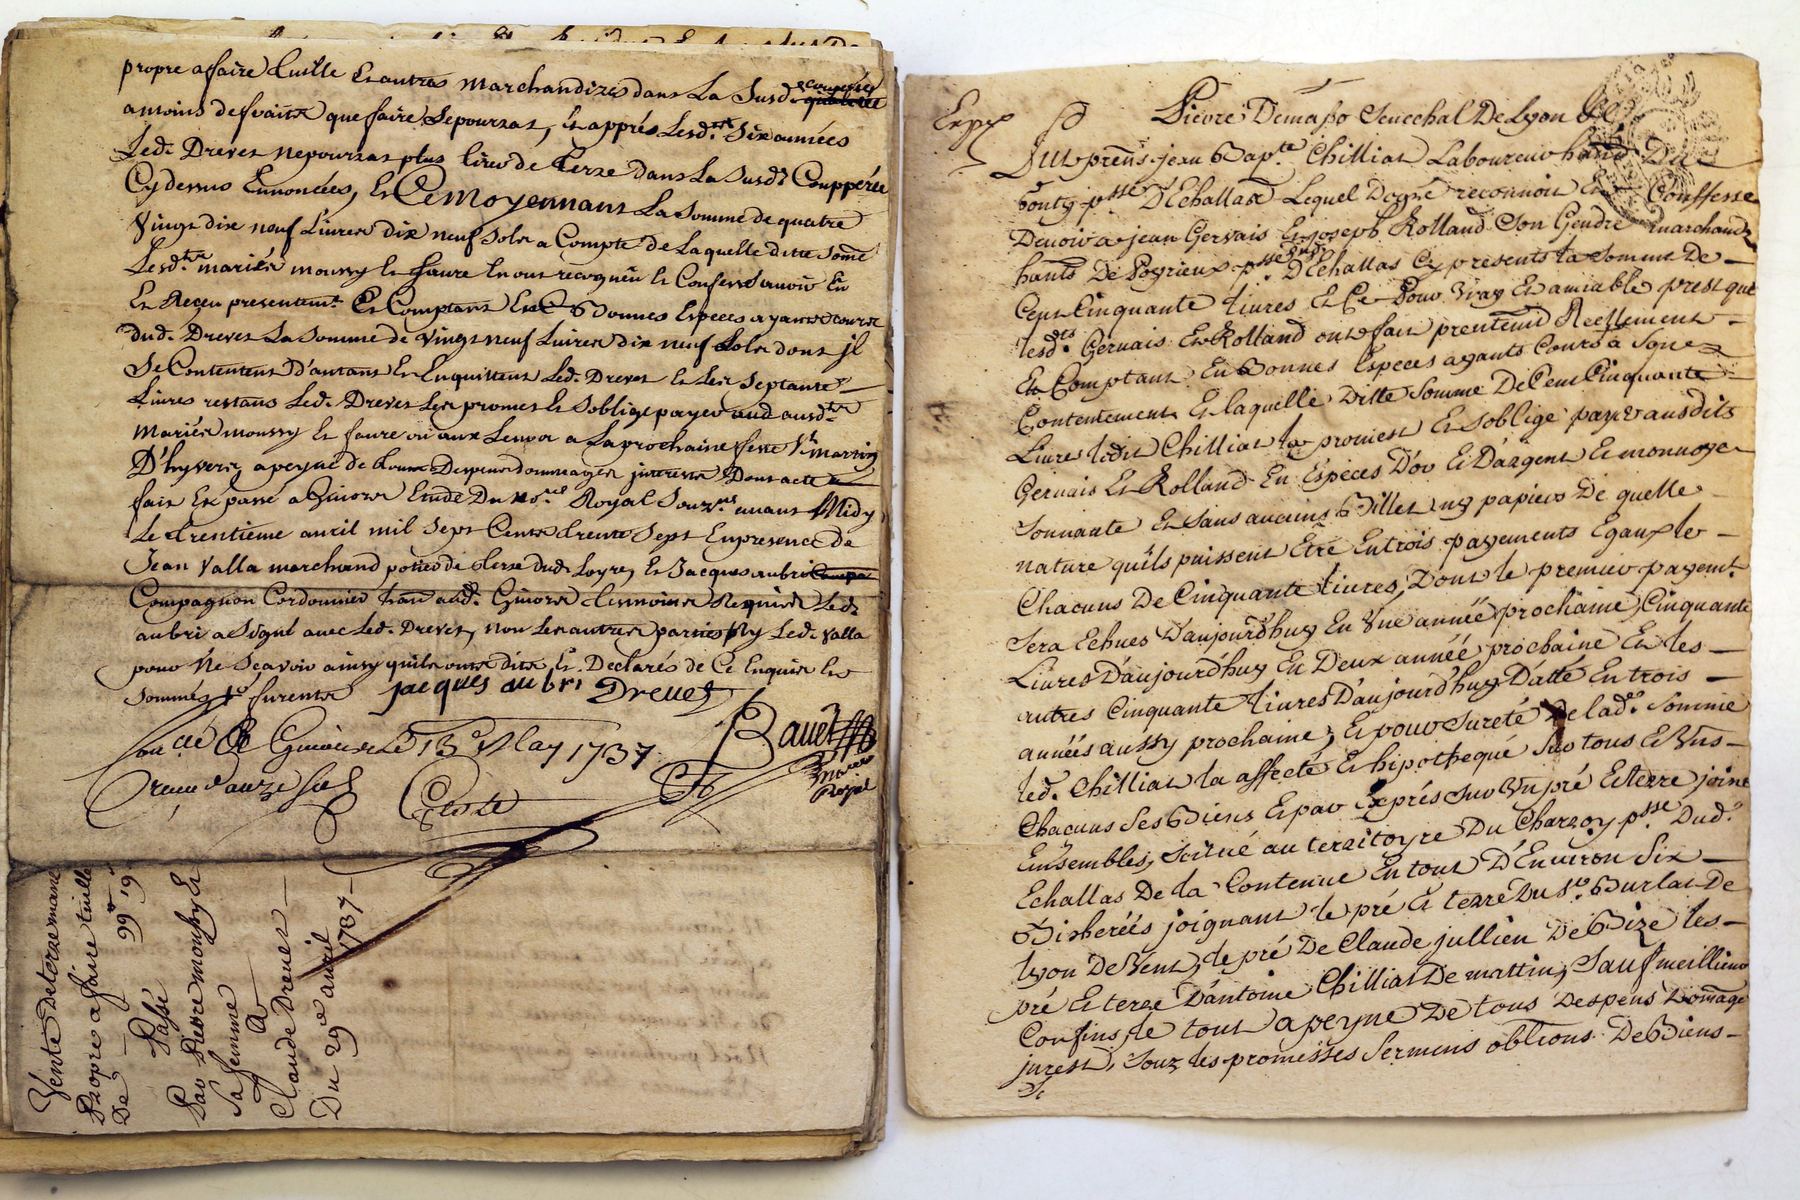 propre a faire tuille Et autres marchandizes dans La Susd. couppée
amoins desfraits que faire Sepourrat, Et apprés Lesd.tes Six années
Led. Drevet nepourrat plus tirer de Terre dans La Susd.e Coupperée
Cy dessus Ennoncées, Et Ce Moyennant La Somme de quatre
Vingt dix neuf Livres dix neuf Sols a Compte de Laquelle ditte Some
Lesd.ts mariés moussy Et faure Ont recogneu Et Confessé avoir Eu
Et Receu presentem.t Et Comptant En Bonnes Especes ayants cours
dud. Drevet La Somme de Vingt neuf Livres dix neuf Sols dont jl
Se Contentent D'autant Et Enquittent Led. Drevet Et Les Septante
Livres restans Led. Drevet Les promet Et Soblige payer aud ausd.ts
Mariés moussy Et faure ou aux Leurs a La prochaine feste St martin
D'hyvers, apeyne de tous Despens dommages jnterests Dont acte
fait Et passé a Givors Etude Du no.re Royal Souz.né avant Midy
Le trentieme avril mil Sept Cents trente Sept Enpresence de
Jean Valla marchand potier de terre dud. Loyre, Et Jacques aubri Compa
Compagnon Cordonnier hant aud. Givors temoins Requis Led.
aubri a Signé avec Led. Drevet, non Les autres parties Ny Led. Valla
pour Ne Sçavoir ainsy quils ont dits, Et Declarés de Ce Enquis Et
Sommés Jo furents jacques aubri Drevet
Con.llé A Givors Le 13e May 1737
Receu douze sols
Bauet
Notaire
Royal
Vente de terre maine
Propre a faire tuille
De 99 ll 19 s
Passé
Par Pierre moussy Et
Sa femme
A
Claude Drevet
Du 29e avril 1737
Exp.
Pierre Demaso Senechal De Lyon
fut prens. jean Bapte. Chilliat Laboureur hant Du
bourg psse D'Echallas Lequel Degré reconnoit Et Conffesse
Devoir a jean Gervais Et joseph Rolland Son Gendre marchands
hants De Poyrieux psse. dud. D'Echallas Cy presents La Somme De
Cent Cinquante livres Et Ce Pour Vray Et amiable prest que
lesd.ts Gervais Et Rolland ont fait prentemt Reellement
Et Comptant En Bonnes Especes ayants Cours a Son
Contentement Et laquelle ditte Somme De Cent Cinquante
Livres ledit Chilliat la promest Et Soblige payer ausdits
Gervais Et Rolland En Espèces D'or Et D'argent Et monnoye
Sonnante Et Sans aucuns Billet ny papiers De quelle
nature quils puissent Etre En trois payements Egaux le
Chacuns De Cinquante Livres, Dont le premier payemt.
Sera Echues D'aujourd'huy En Une année prochaine, Cinquante
Livres D'aujourd'huy En Deux année prochaine Et les
autres Cinquante Livres D'aujourd'huy Datté En trois
années aussy prochaine, Et pour Sureté De lad.e Somme
led. Chilliat la affecté Et hipothequé Sur tous Et Uns
Chacuns Ses Biens Et par Exprés Sur Un pré Et terre joint
Ensembles, Scitué au territoyre Du Charzoy psse. Dud.
Echallas De la Contenue En tout D'Environ Six
Bicherées joignant le pré Et terre Du Sr. Burlat De
Lyon De Vent, le pré De Claude jullien De Bize les
pré Et terre D'antoine Chilliat De mattin, Sauf meillieur
Confins le tout apeyne De tous Despens Domage
jnrest, Souz les promesses Serments obtions. De Biens